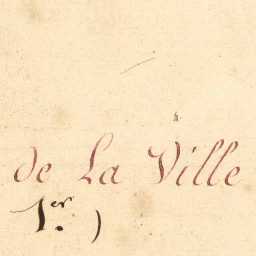 de La Ville
1er. )